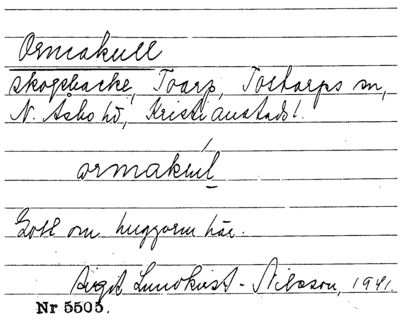 Ormakull
skogsbacke, Toarp, Tostarps sn,
N. Åsbo hd, Kristianstads l.
ormakul
Gott om huggorm här.
Birgit Lundkvist-Nilsson, 1941.
Nr 5505.